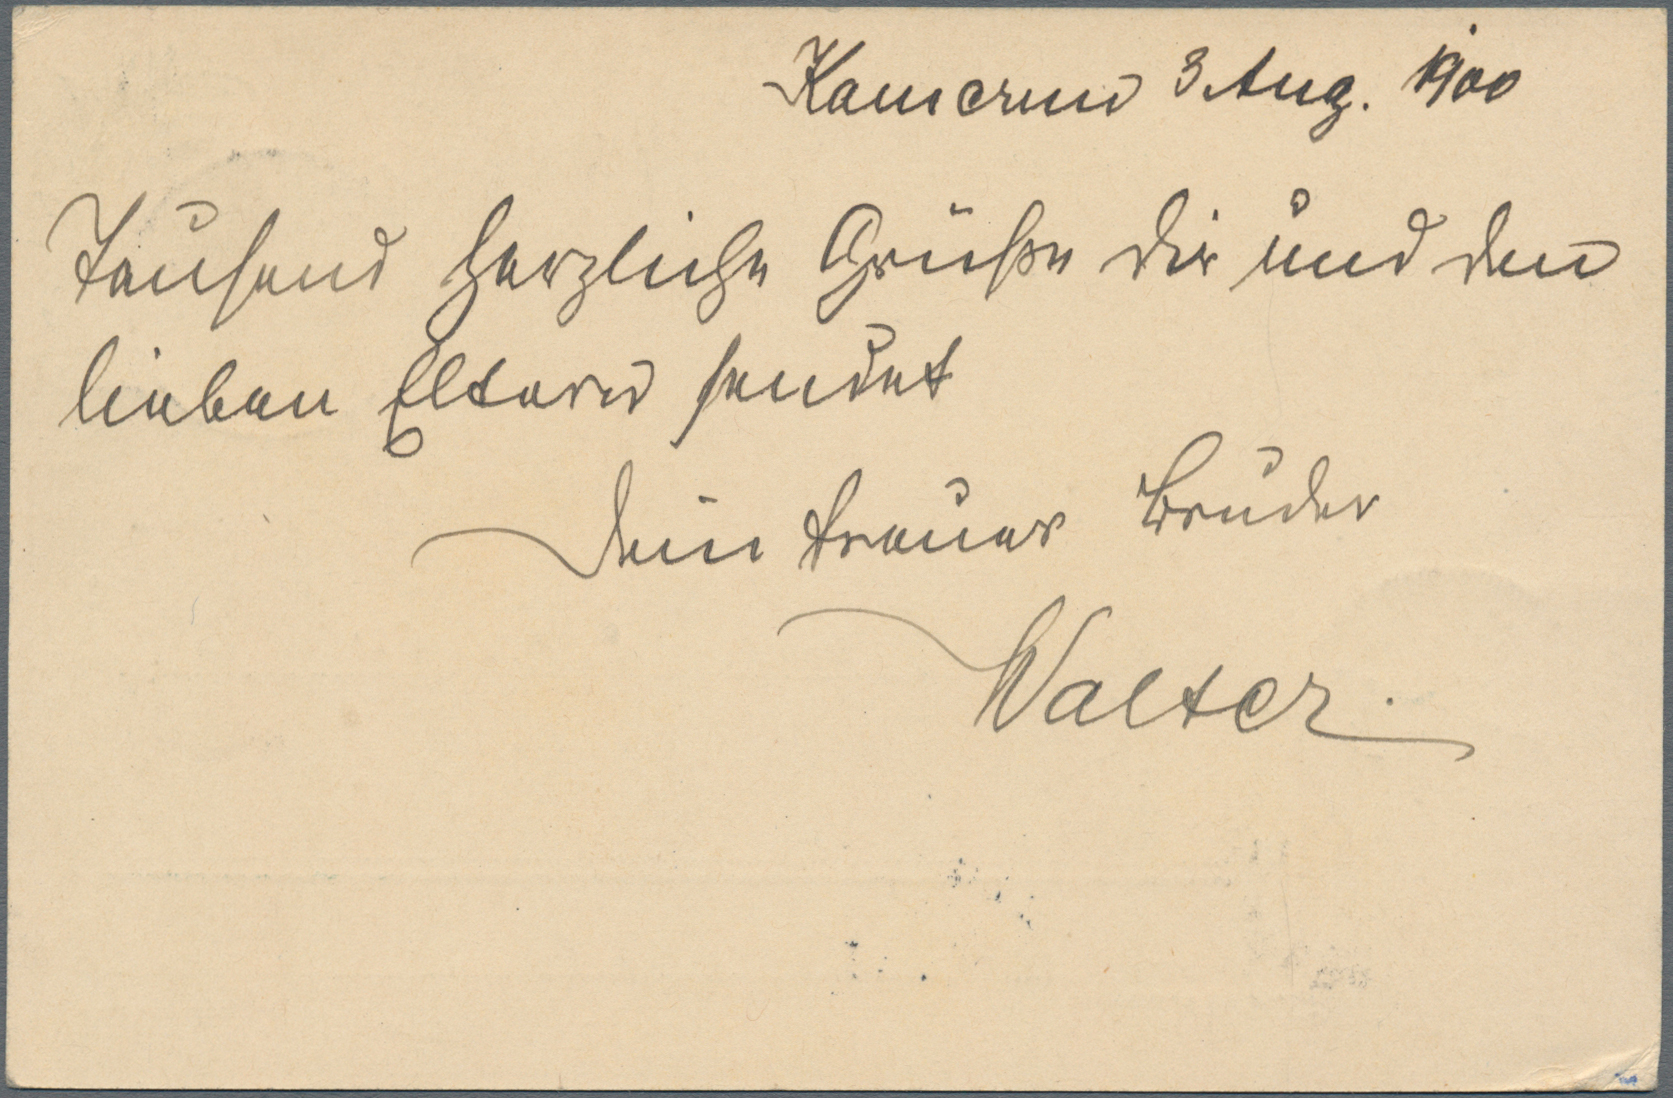 Kamerun 3 Aug. 1900
Tausend herzliche Grüße dir und den
lieben Eltern sendet
dein treuer Bruder
Walter.